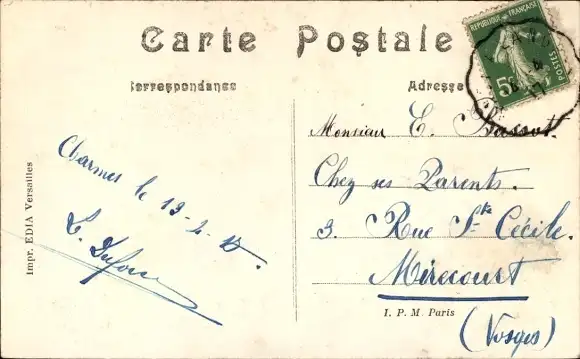 Carte Postale
Correspondance
Adresse
REPUBLIQUE FRANÇAISE
POSTES
5c
Charmes le 19-2-15.
Impr. EDIA Versailles
Monsieur E. Bassot.
Chez ses Parents.
3. Rue Ste Cécile.
Mirecourt
(Vosges)
I. P. M. Paris